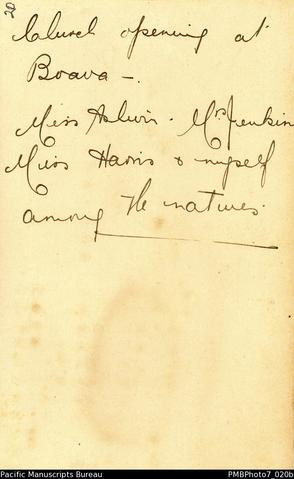 20
Church opening at
Boava -.
Miss Ashwin. Mrs Jenkin
Miss Harris & myself
among the natives.
Pacific Manuscripts Bureau PMBPhoto7_020b